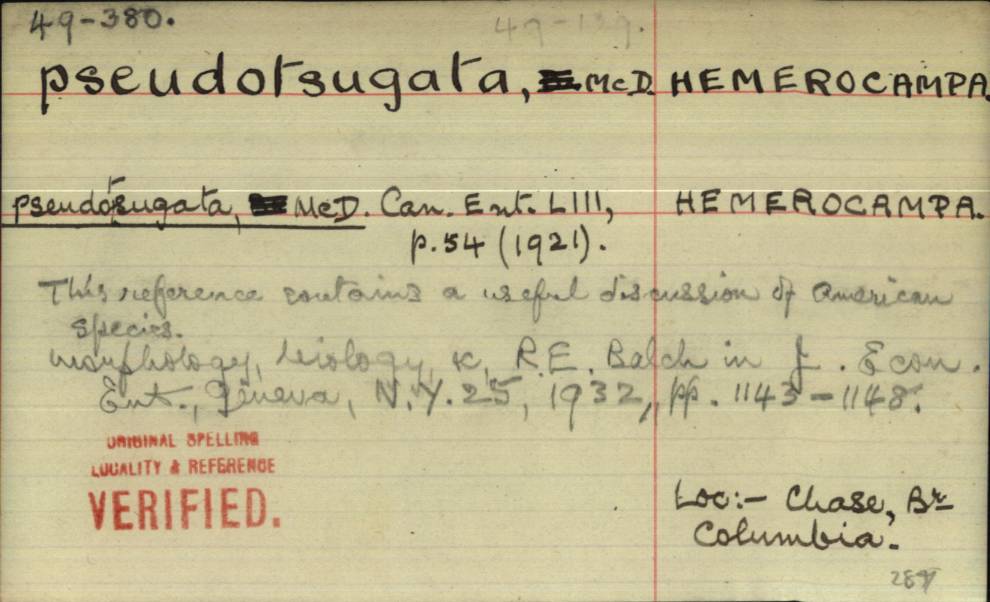 49-380. 49-139.
pseudotsugata, McD. HEMEROCAMPA.
pseudotsugata, McD. Can. Ent. LIII, HEMEROCAMPA.
p.54 (1921).
This reference contains a useful discussion of American
species.
Morphology, biology, &c, R.E. Balch in J. Econ.
Ent., Geneva, N.Y. 25, 1932, pp. 1143-1148.
ORIGINAL SPELLING
LOCALITY & REFERENCE
VERIFIED.
Loc:- Chase, Br
Columbia.